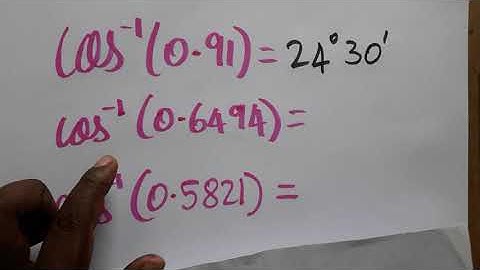 cos⁻¹(0.91) = 24°30'
cos⁻¹(0.6494) =
cos⁻¹(0.5821) =